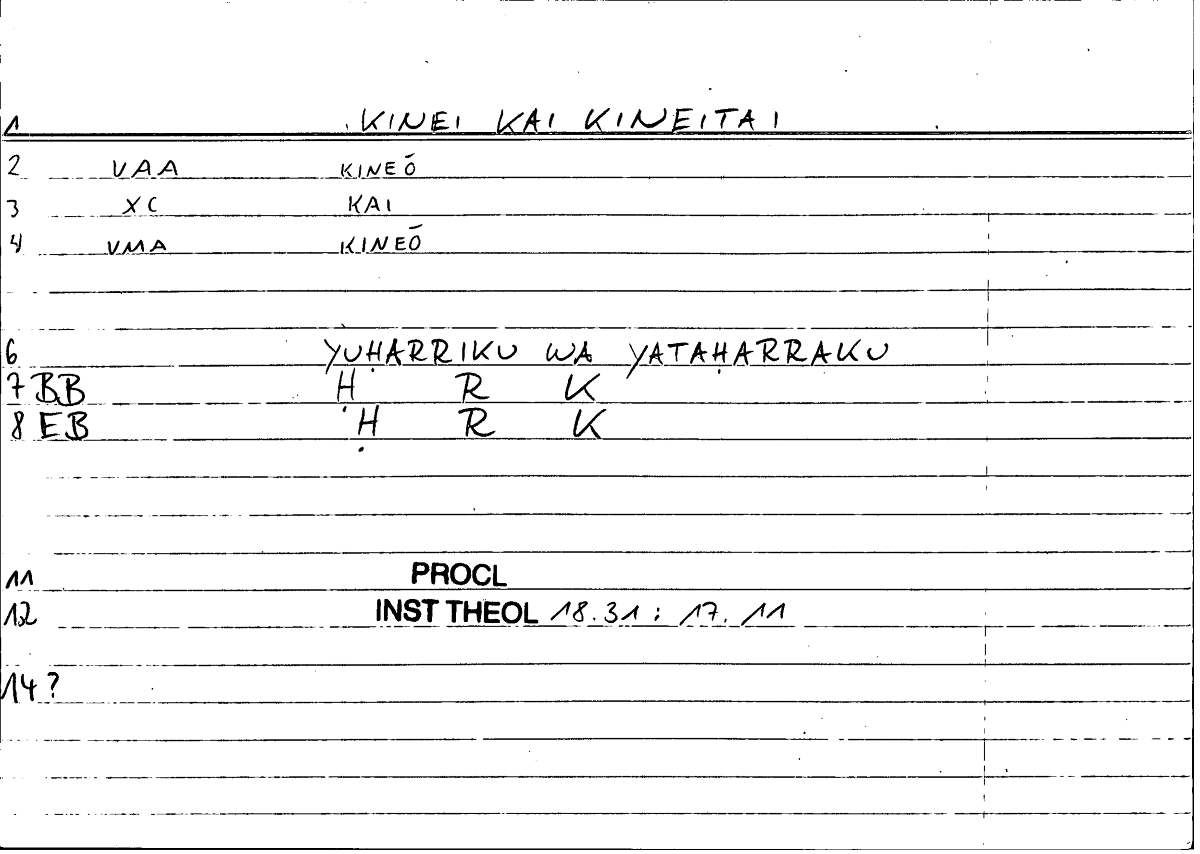 1 KINEI KAI KINEITAI
2 VAA KINEŌ
3 XC KAI
4 VMA KINEŌ
6 YUḤARRIKU WA YATAḤARRAKU
7 BB Ḥ R K
8 EB Ḥ R K
11 PROCL
12 INST THEOL 18.31 : 17.11
14?